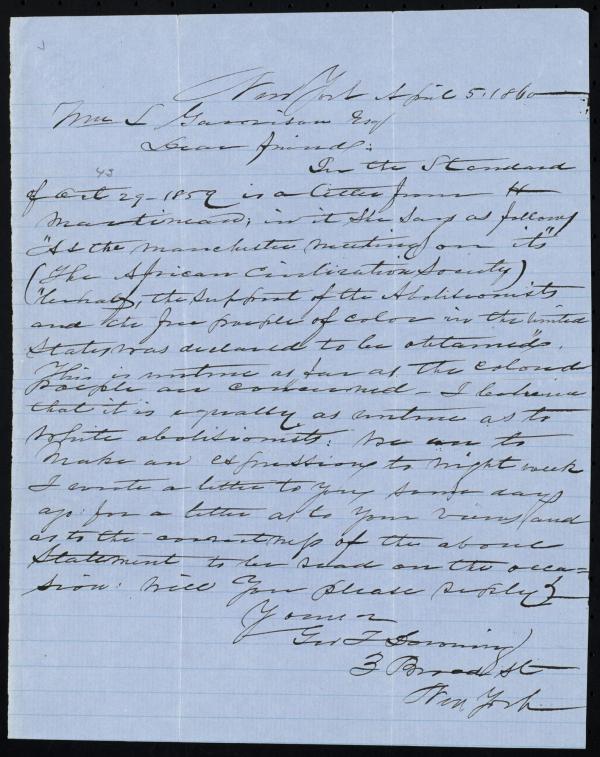 New York April 5, 1860
Wm L Garrison Esq
Dear friend:
In the Standard
43
of Oct 29 - 1859 is a letter from H
Martineau; in it she says as follows
"At the Manchester meeting on its"
(The African Civilization Society)
"behalf, the support of the Abolitionists
and the free people of color in the United
States was declared to be obtained".
This is untrue as far as the colored
people are concerned - I believe
that it is equally as untrue as to
white abolitionists: We are to
make an expression to night week
I wrote a letter to you some days
ago for a letter as to your views and
as to the correctness of the above
statement to be read on the occa=
sion: Will You please reply
Yours
Geo T Downing
3 Broad St
New York